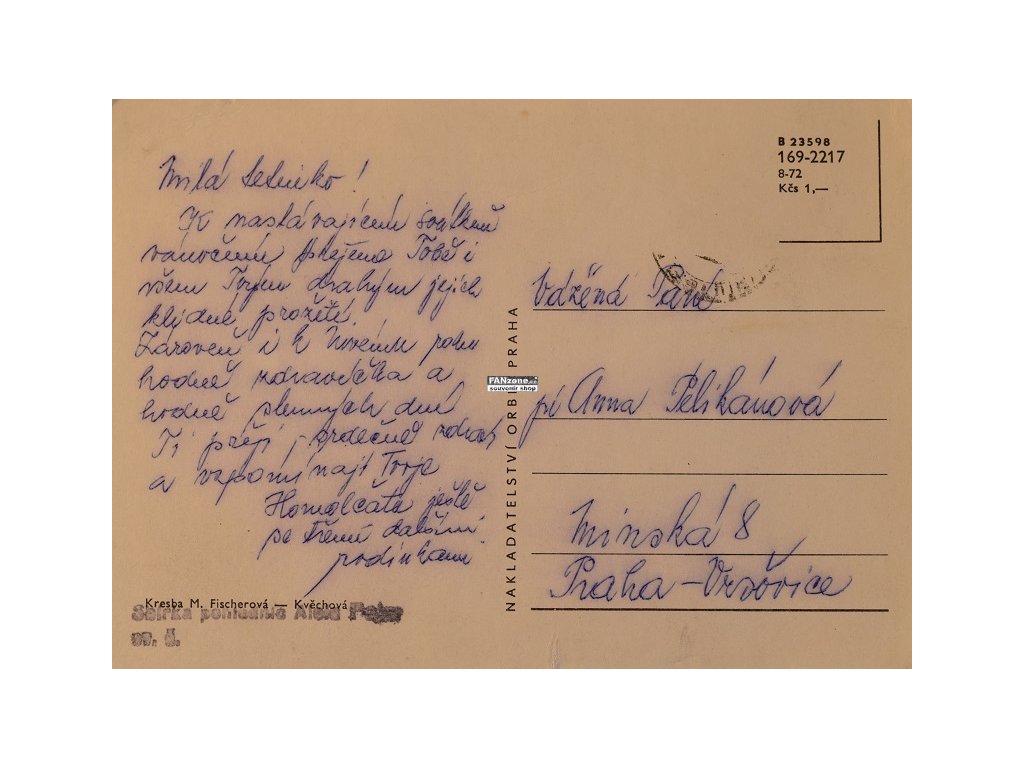 Milá Letinko!
K nastávajícím svátkům
vánočním přejeme Tobě i
všem Tvým drahým jejich
klidné prožití.
Zároveň i k Novému roku
hodně zdravíčka a
hodně slunných dní
Ti přejí, srdečně zdraví
a vzpomínají Tvoje
Homolčata ještě
se třemi dalšími
rodinkami
Kresba M. Fischerová — Kvěchová
Sbírka pohlednic
NAKLADATELSTVÍ ORBIS PRAHA
FANzone.cz
souvenir shop
B 23598
169-2217
8-72
Kčs 1,—
Vážená Paní
pí Anna Pelikánová
Minská 8
Praha – Vršovice